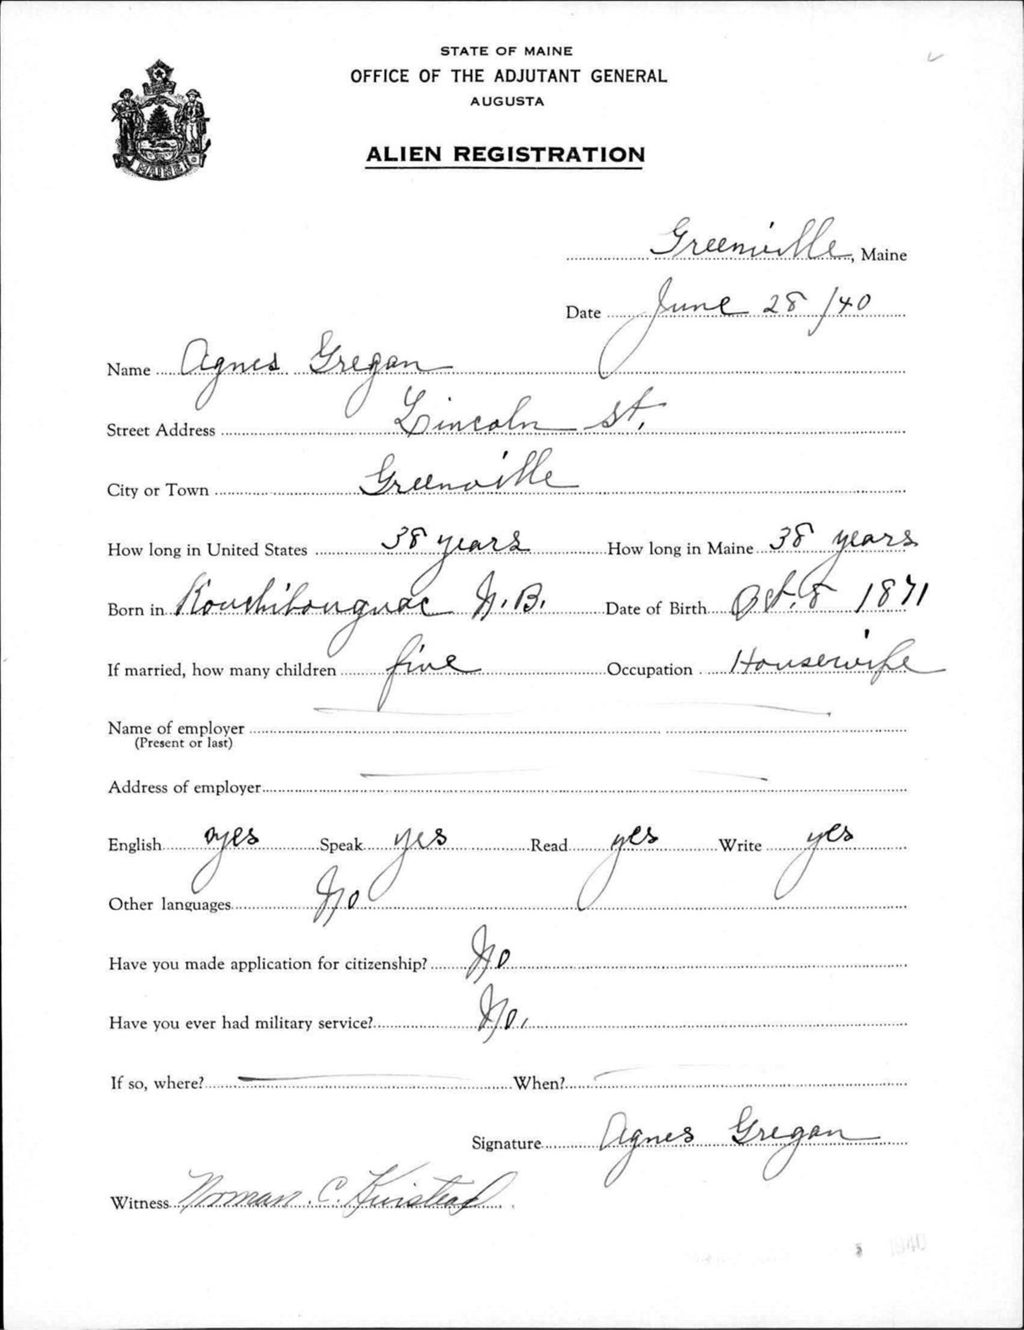 STATE OF MAINE
OFFICE OF THE ADJUTANT GENERAL
AUGUSTA
ALIEN REGISTRATION
MAINE
Greenville, Maine
Date June 28/40
Name Agnes Gregan
Street Address Lincoln St.
City or Town Greenville
How long in United States 38 years How long in Maine 38 years
Born in Kouchibouguac N.B. Date of Birth Oct. 8 1871
If married, how many children five Occupation Housewife
Name of employer
(Present or last)
Address of employer
English yes Speak yes Read yes Write yes
Other languages No
Have you made application for citizenship? No
Have you ever had military service? No.
If so, where? When?
Signature Agnes Gregan
Witness Norman C.
1940